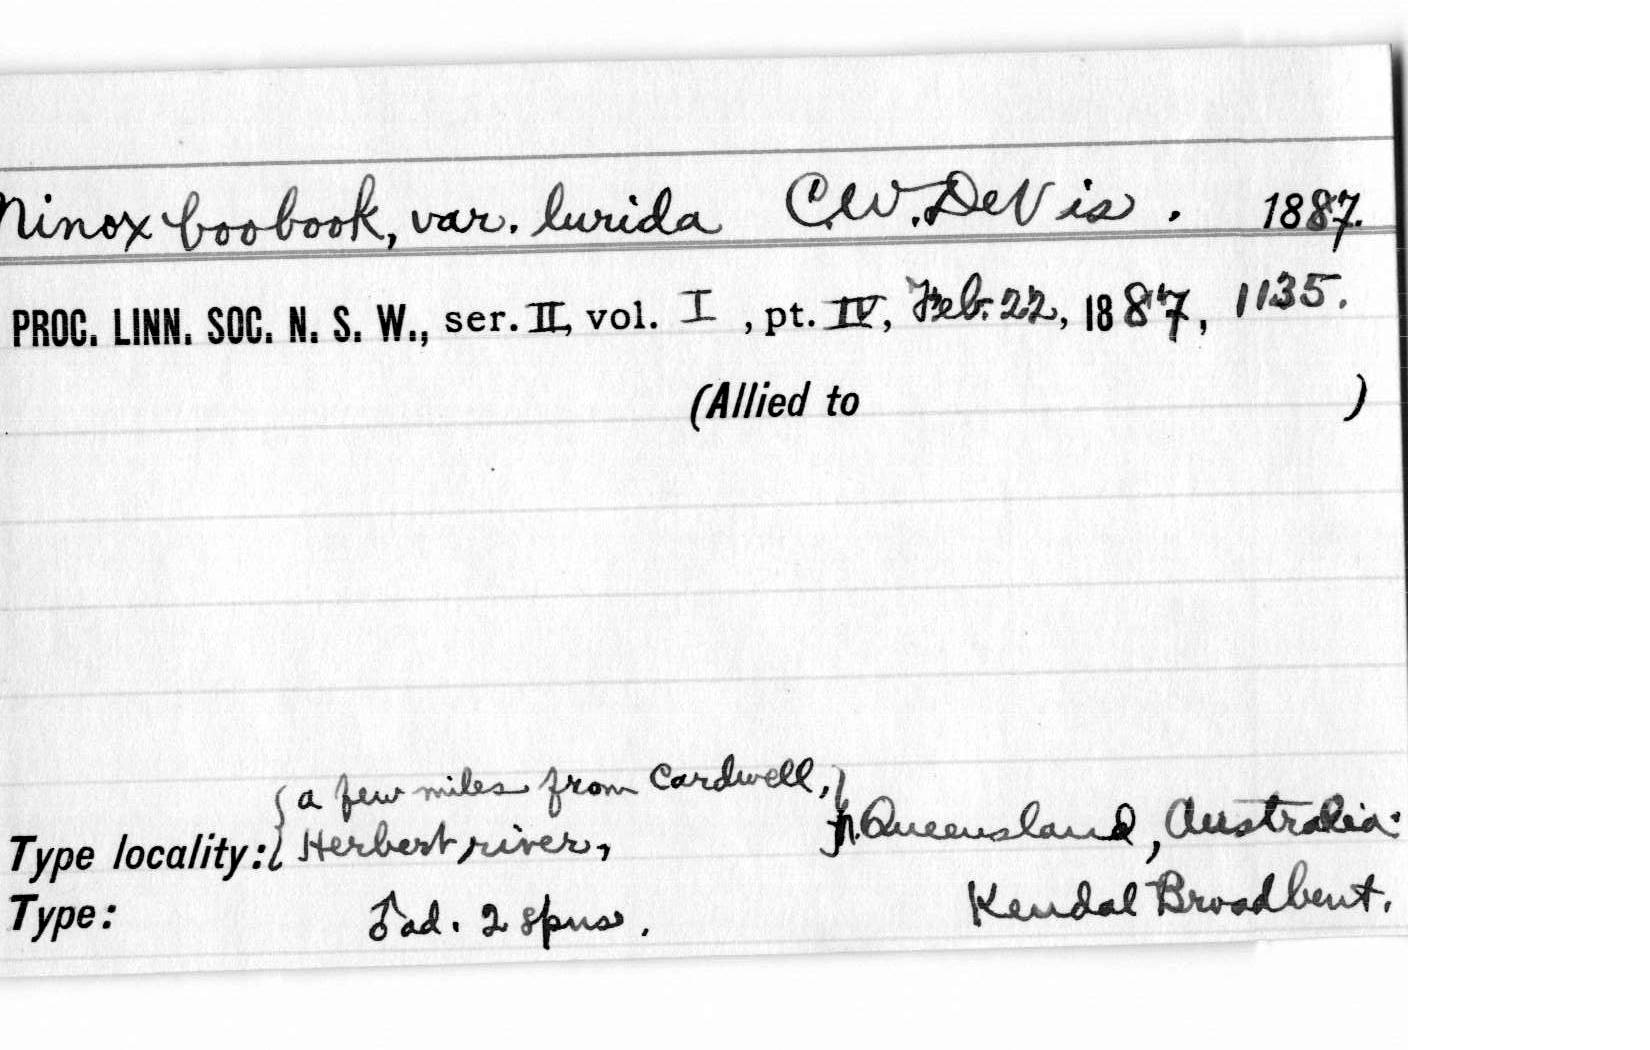 Ninox boobook, var. lurida C.W. DeVis. 1887.
PROC. LINN. SOC. N. S. W., ser. II, vol. I, pt. IV, Feb. 22, 1887, 1135.
(Allied to )
a few miles from Cardwell,
Type locality: Herbert river, n. Queensland, Australia:
Type: ♂ ad. 2 spns. Kendal Broadbent.